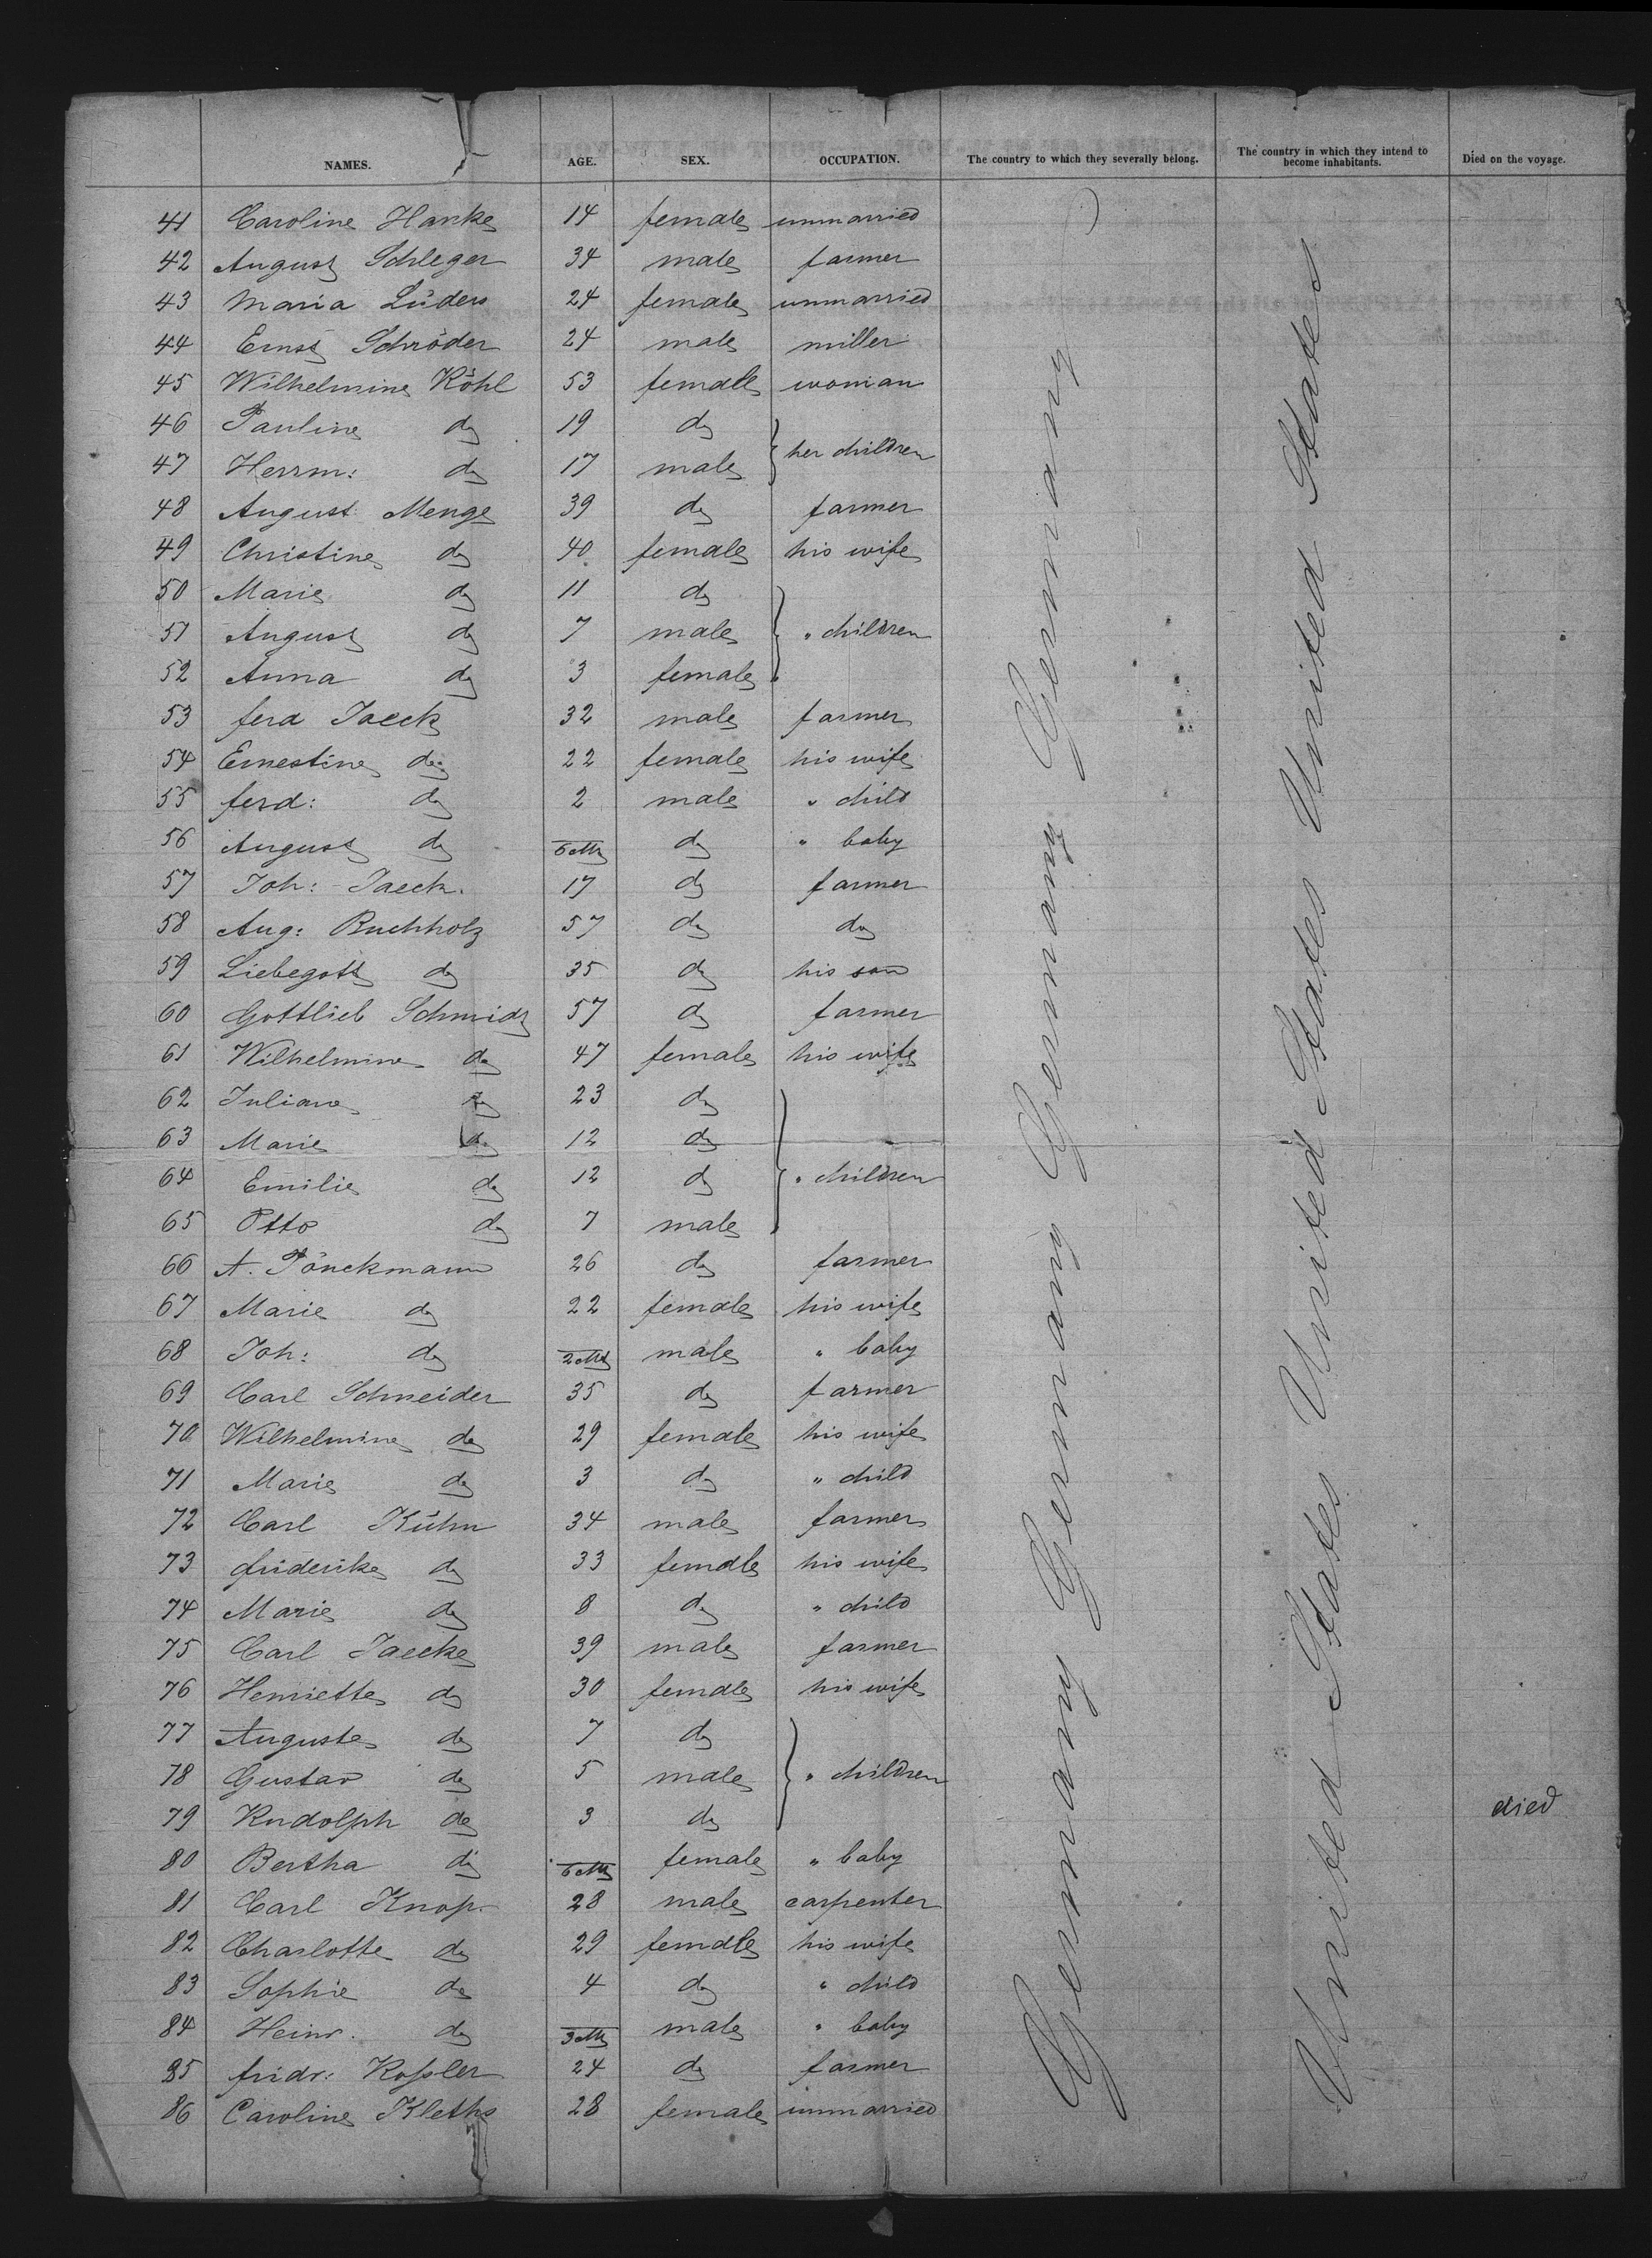 NAMES. AGE. SEX. OCCUPATION. The country to which they severally belong. The country in which they intend to become inhabitants. Died on the voyage.
41 Caroline Hanke 14 female unmarried
42 August Schleger 34 male farmer
43 Maria Lüders 24 female unmarried
44 Ernst Schröder 24 male miller
45 Wilhelmine Köhl 53 female woman
46 Pauline do 19 do
her children
47 Herrm: do 17 male
48 August Menge 39 do farmer
49 Christine do 40 female his wife
50 Marie do 11 do
51 August do 7 male " children
52 Anna do 3 female
53 ferd Jaeck 32 male farmer
54 Ernestine do 22 female his wife
55 ferd: do 2 male " child
56 August do 6 Mt do " baby
57 Joh: Jaeck. 17 do farmer
58 Aug: Buchholz 57 do do
59 Liebegott do 35 do his son
60 Gottlieb Schmidt 57 do farmer
61 Wilhelmine do 47 female his wife
62 Juliane do 23 do
63 Marie do 12 do
64 Emilie do 12 do " children
65 Otto do 7 male
66 A. Pönckmann 26 do farmer
67 Marie do 22 female his wife
68 Joh: do 2 Mt male " baby
69 Carl Schneider 35 do farmer
70 Wilhelmine do 29 female his wife
71 Marie do 3 do " child
72 Carl Kühn 34 male farmer
73 friderike do 33 female his wife
74 Marie do 8 do " child
75 Carl Jaecke 39 male farmer
76 Henriette do 30 female his wife
77 Auguste do 7 do
78 Gustav do 5 male " children
79 Rudolph do 3 do died
80 Bertha do 6 Mt female " baby
81 Carl Knop. 28 male carpenter
82 Charlotte do 29 female his wife
83 Sophie do 4 do " child
84 Heinr. do 3 Mt male " baby
85 fridr: Koßler 24 do farmer
86 Caroline Kleths 28 female unmarried
Germany Germany Germany Germany
United States United States United States